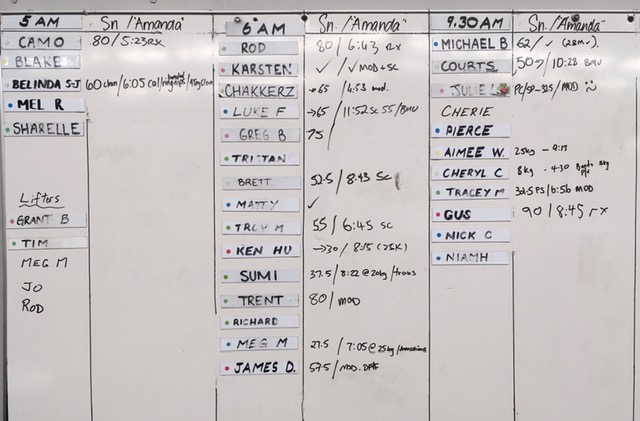 5 AM Sn./"Amanda"
CAMO 80/5:23 RX
BLAKE
BELINDA S-J 60 clean/6:05
MEL R
SHARELLE
Lifters
GRANT B
TIM
MEG M
JO
ROD
6 AM Sn./"Amanda"
ROD 80/6:43 rx
KARSTEN ✓/✓ MOD + SC
CHAKKERZ →65/4:53 mod.
LUKE F →65/11:52 SC 55/BMU
GREG B 75/
TRISTAN
BRETT 52.5/8:43 SC
MATTY ✓
M 55/6:45 SC
KEN HU →30/8:15 (25K)
SUMI 37.5/8:22 @20kg/trans
TRENT 80/MOD
RICHARD
MEG M 27.5/7:05 @25kg/transitions
JAMES D. 57.5/MOD.
9.30 AM Sn./"Amanda"
MICHAEL B 62/✓
COURTS 50/10:28 BMU
JULIE MOD
CHERIE
PIERCE
AIMEE W. 25kg - 9:15
CHERYL C 8kg - 4:30
TRACEY M 32.5 PS/6:56 MOD
GUS 90/8:45 rx
NICK C
NIAMH